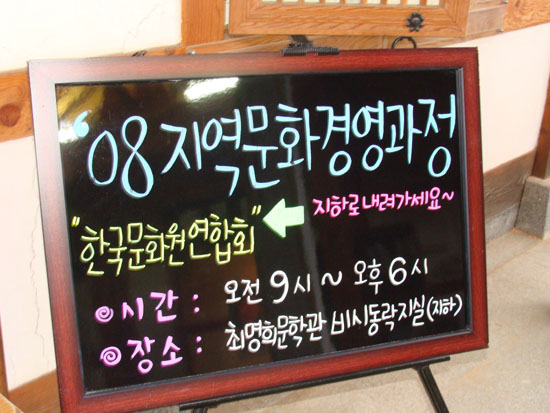 '08 지역문화경영과정
"한국문화원연합회" 지하로 내려가세요~
시간 : 오전 9시 ~ 오후 6시
장소 : 최명희문학관 비시동락지실(지하)